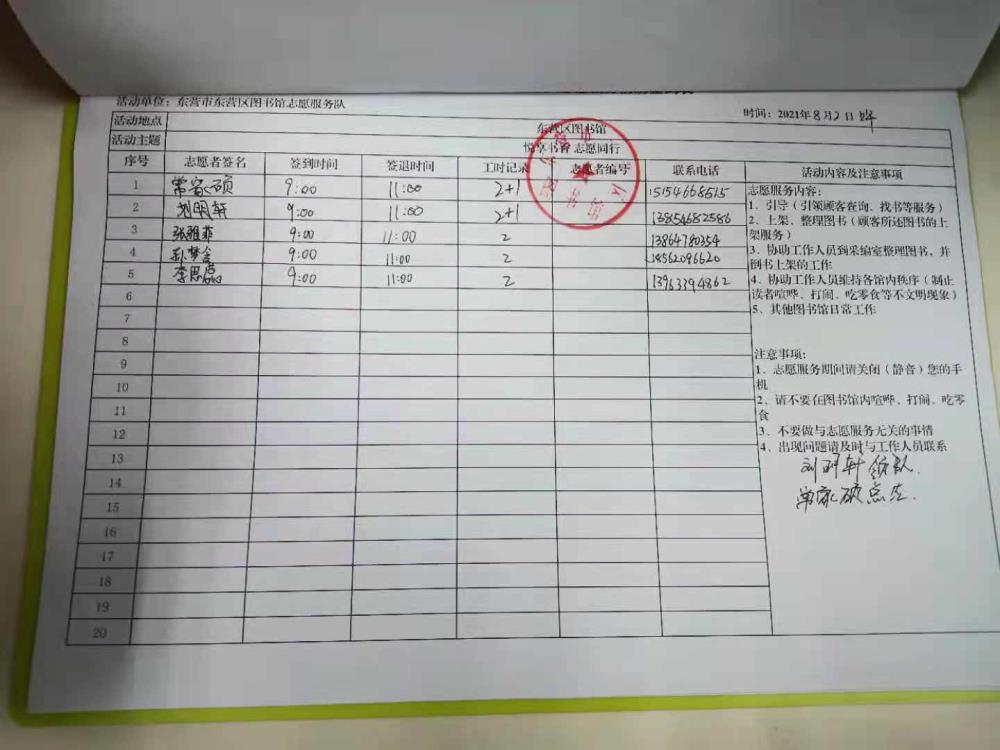 活动单位：东营市东营区图书馆志愿服务队
时间：2021年8月2日
活动地点 东营区图书馆
活动主题 悦享书香 志愿同行
序号 志愿者签名 签到时间 签退时间 工时记录 志愿者编号 联系电话 活动内容及注意事项
1 常家硕 9:00 11:00 2+1 15154668515
2 刘明轩 9:00 11:00 2+1 13854682586
3 张雅菲 9:00 11:00 2 13864780354
4 孙梦 9:00 11:00 2 18562096620
5 李思 9:00 11:00 2 13963394862
6
7
8
9
10
11
12
13
14
15
16
17
18
19
20
志愿服务内容：
1、引导（引领顾客查询、找书等服务）
2、上架、整理图书（顾客所还图书的上
架服务）
3、协助工作人员到采编室整理图书，并
倒书上架的工作
4、协助工作人员维持各馆内秩序（制止
读者喧哗、打闹、吃零食等不文明现象）
5、其他图书馆日常工作
注意事项：
1、志愿服务期间请关闭（静音）您的手
机
2、请不要在图书馆内喧哗、打闹、吃零
食
3、不要做与志愿服务无关的事情
4、出现问题请及时与工作人员联系
刘明轩 领队
常家硕 点
图书馆